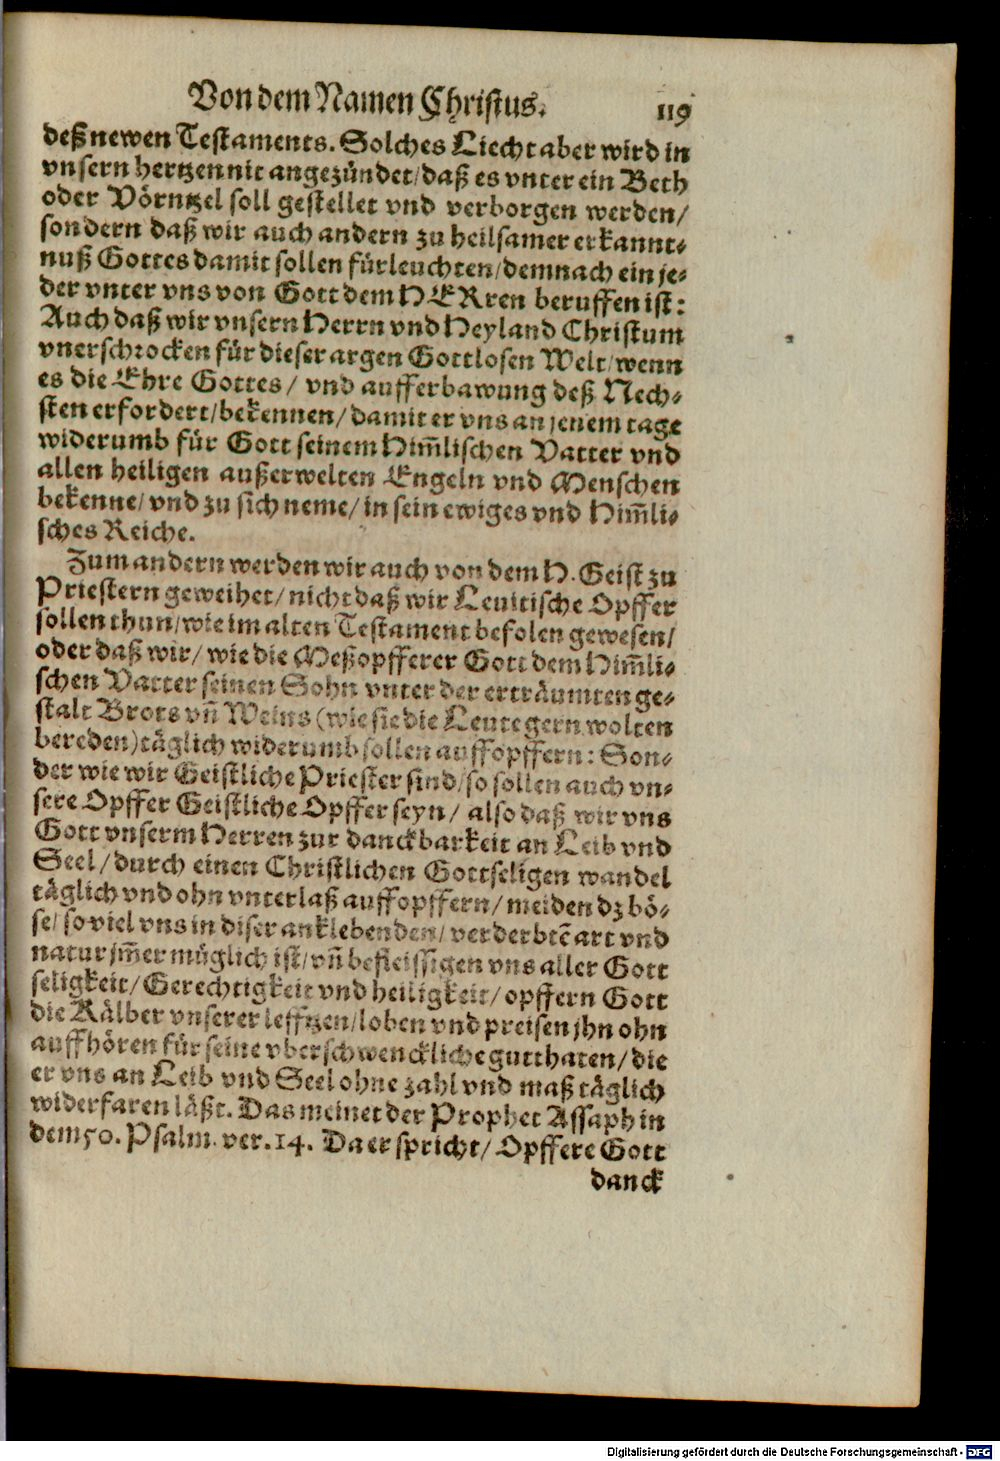 Von dem Namen Christus. 119
deß newen Testaments. Solches Liecht aber wird in
vnsern hertzen nit angezündet/ daß es vnter ein Beth
oder Vörntzel soll gestellet vnd verborgen werden/
sondern daß wir auch andern zu heilsamer erkannt⸗
nuß Gottes damit sollen fürleuchten/ demnach ein je⸗
der vnter vns von Gott dem HERren beruffen ist:
Auch daß wir vnsern Herrn vnd Heyland Christum
vnerschrocken für dieser argen Gottlosen Welt/ wenn
es die Ehre Gottes/ vnd aufferbawung deß Nech⸗
sten erfordert/ bekennen/ damit er vns an jenem tage
widerumb für Gott seinem Him̃lischen Vatter vnd
allen heiligen außerwelten Engeln vnd Menschen
bekenne/ vnd zu sich neme/ in sein ewiges vnd Him̃li⸗
sches Reiche.
Zum andern werden wir auch von dem H. Geist zu
Priestern geweihet/ nicht daß wir Leuitische Opffer
sollen thun/ wie im alten Testament befolen gewesen/
oder daß wir/ wie die Meßopfferer Gott dem Him̃li⸗
schen Vatter seinen Sohn vnter der erträumten ge⸗
stalt Brots vñ Weins (wie sie die Leute gern wolten
bereden) täglich widerumb sollen auffopffern: Son⸗
der wie wir Geistliche Priester sind/ so sollen auch vn⸗
sere Opffer Geistliche Opffer seyn/ also daß wir vns
Gott vnserm Herren zur danckbarkeit an Leib vnd
Seel/ durch einen Christlichen Gottseligen wandel
täglich vnd ohn vnterlaß auffopffern/ meiden dz bö⸗
se/ so viel vns in diser anklebenden/ verderbtẽ art vnd
natur jm̃er müglich ist/ vñ befleissigen vns aller Gott
seligkeit/ Gerechtigkeit vnd heiligkeit/ opffern Gott
die Kälber vnserer leffzen/ loben vnd preisen jhn ohn
auffhören für seine vberschwenckliche gutthaten/ die
er vns an Leib vnd Seel ohne zahl vnd maß täglich
widerfaren läßt. Das meinet der Prophet Assaph in
dem 50. Psalm. ver. 14. Da er spricht/ Opffere Gott
danck
Digitalisierung gefördert durch die Deutsche Forschungsgemeinschaft - DFG